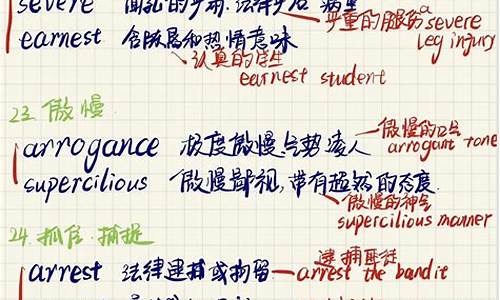 severe
严重的腿伤 a severe leg injury
earnest 含
和热情意味
认真的学生
earnest student
23. 傲慢
arrogance 极度傲慢,气势凌人
傲慢的口气
arrogant tone
supercilious 傲慢鄙视,带有超然的态度
傲慢的神气
supercilious manner
24. 抓住 捕捉
arrest 法律逮捕或拘留
逮捕匪徒
arrest the bandit